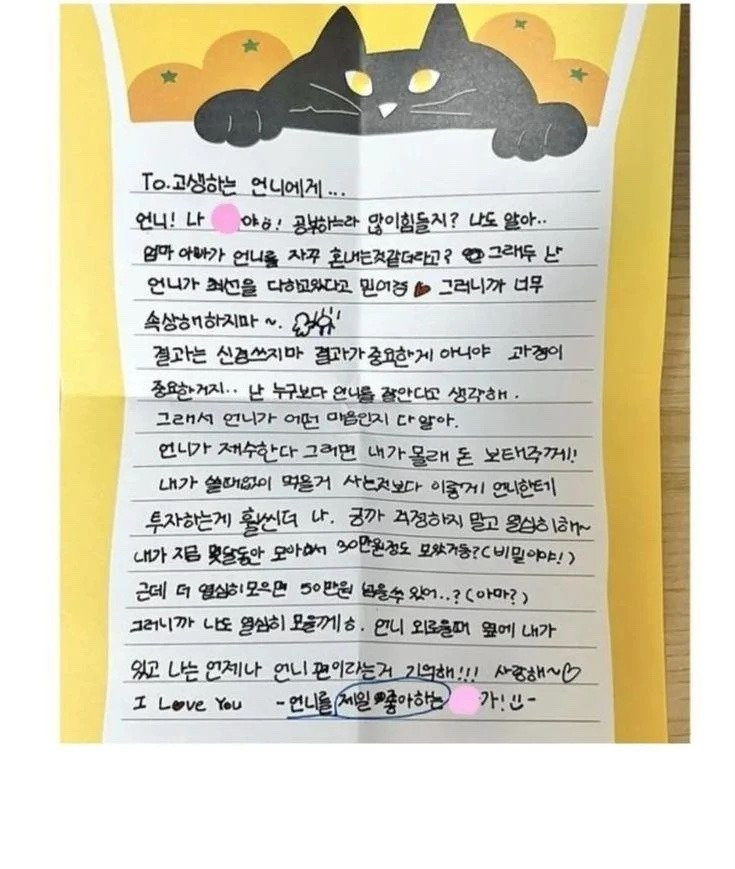 To.고생하는 언니에게...
언니! 나 야ㅎ! 공부하느라 많이힘들지? 나도 알아..
엄마 아빠가 언니를 자꾸 혼내는것같더라고? 그래두 난
언니가 최선을 다하고있다고 믿어경 그러니까 너무
속상해하지마~.
결과는 신경쓰지마 결과가 중요한게 아니야 과정이
중요한거지.. 난 누구보다 언니를 잘안다고 생각해.
그래서 언니가 어떤 마음인지 다 알아.
언니가 재수한다 그러면 내가 몰래 돈 보태주께!!
내가 쓸때없이 먹을거 사는것보다 이렇게 언니한테
투자하는게 훨씬더 나. 긍까 걱정하지 말고 열심히해~
내가 지금 몇달동안 모아서 30만원정도 모았거등?(비밀이야!)
근데 더 열심히모으면 50만원 넘을수 있어..?(아마?)
그러니까 나도 열심히 모을께ㅎ. 언니 외로울때 옆에 내가
있고 나는 언제나 언니 편이라는거 기억해!!! 사랑해~♡
I Love You -언니를 제일 좋아하는 가!-